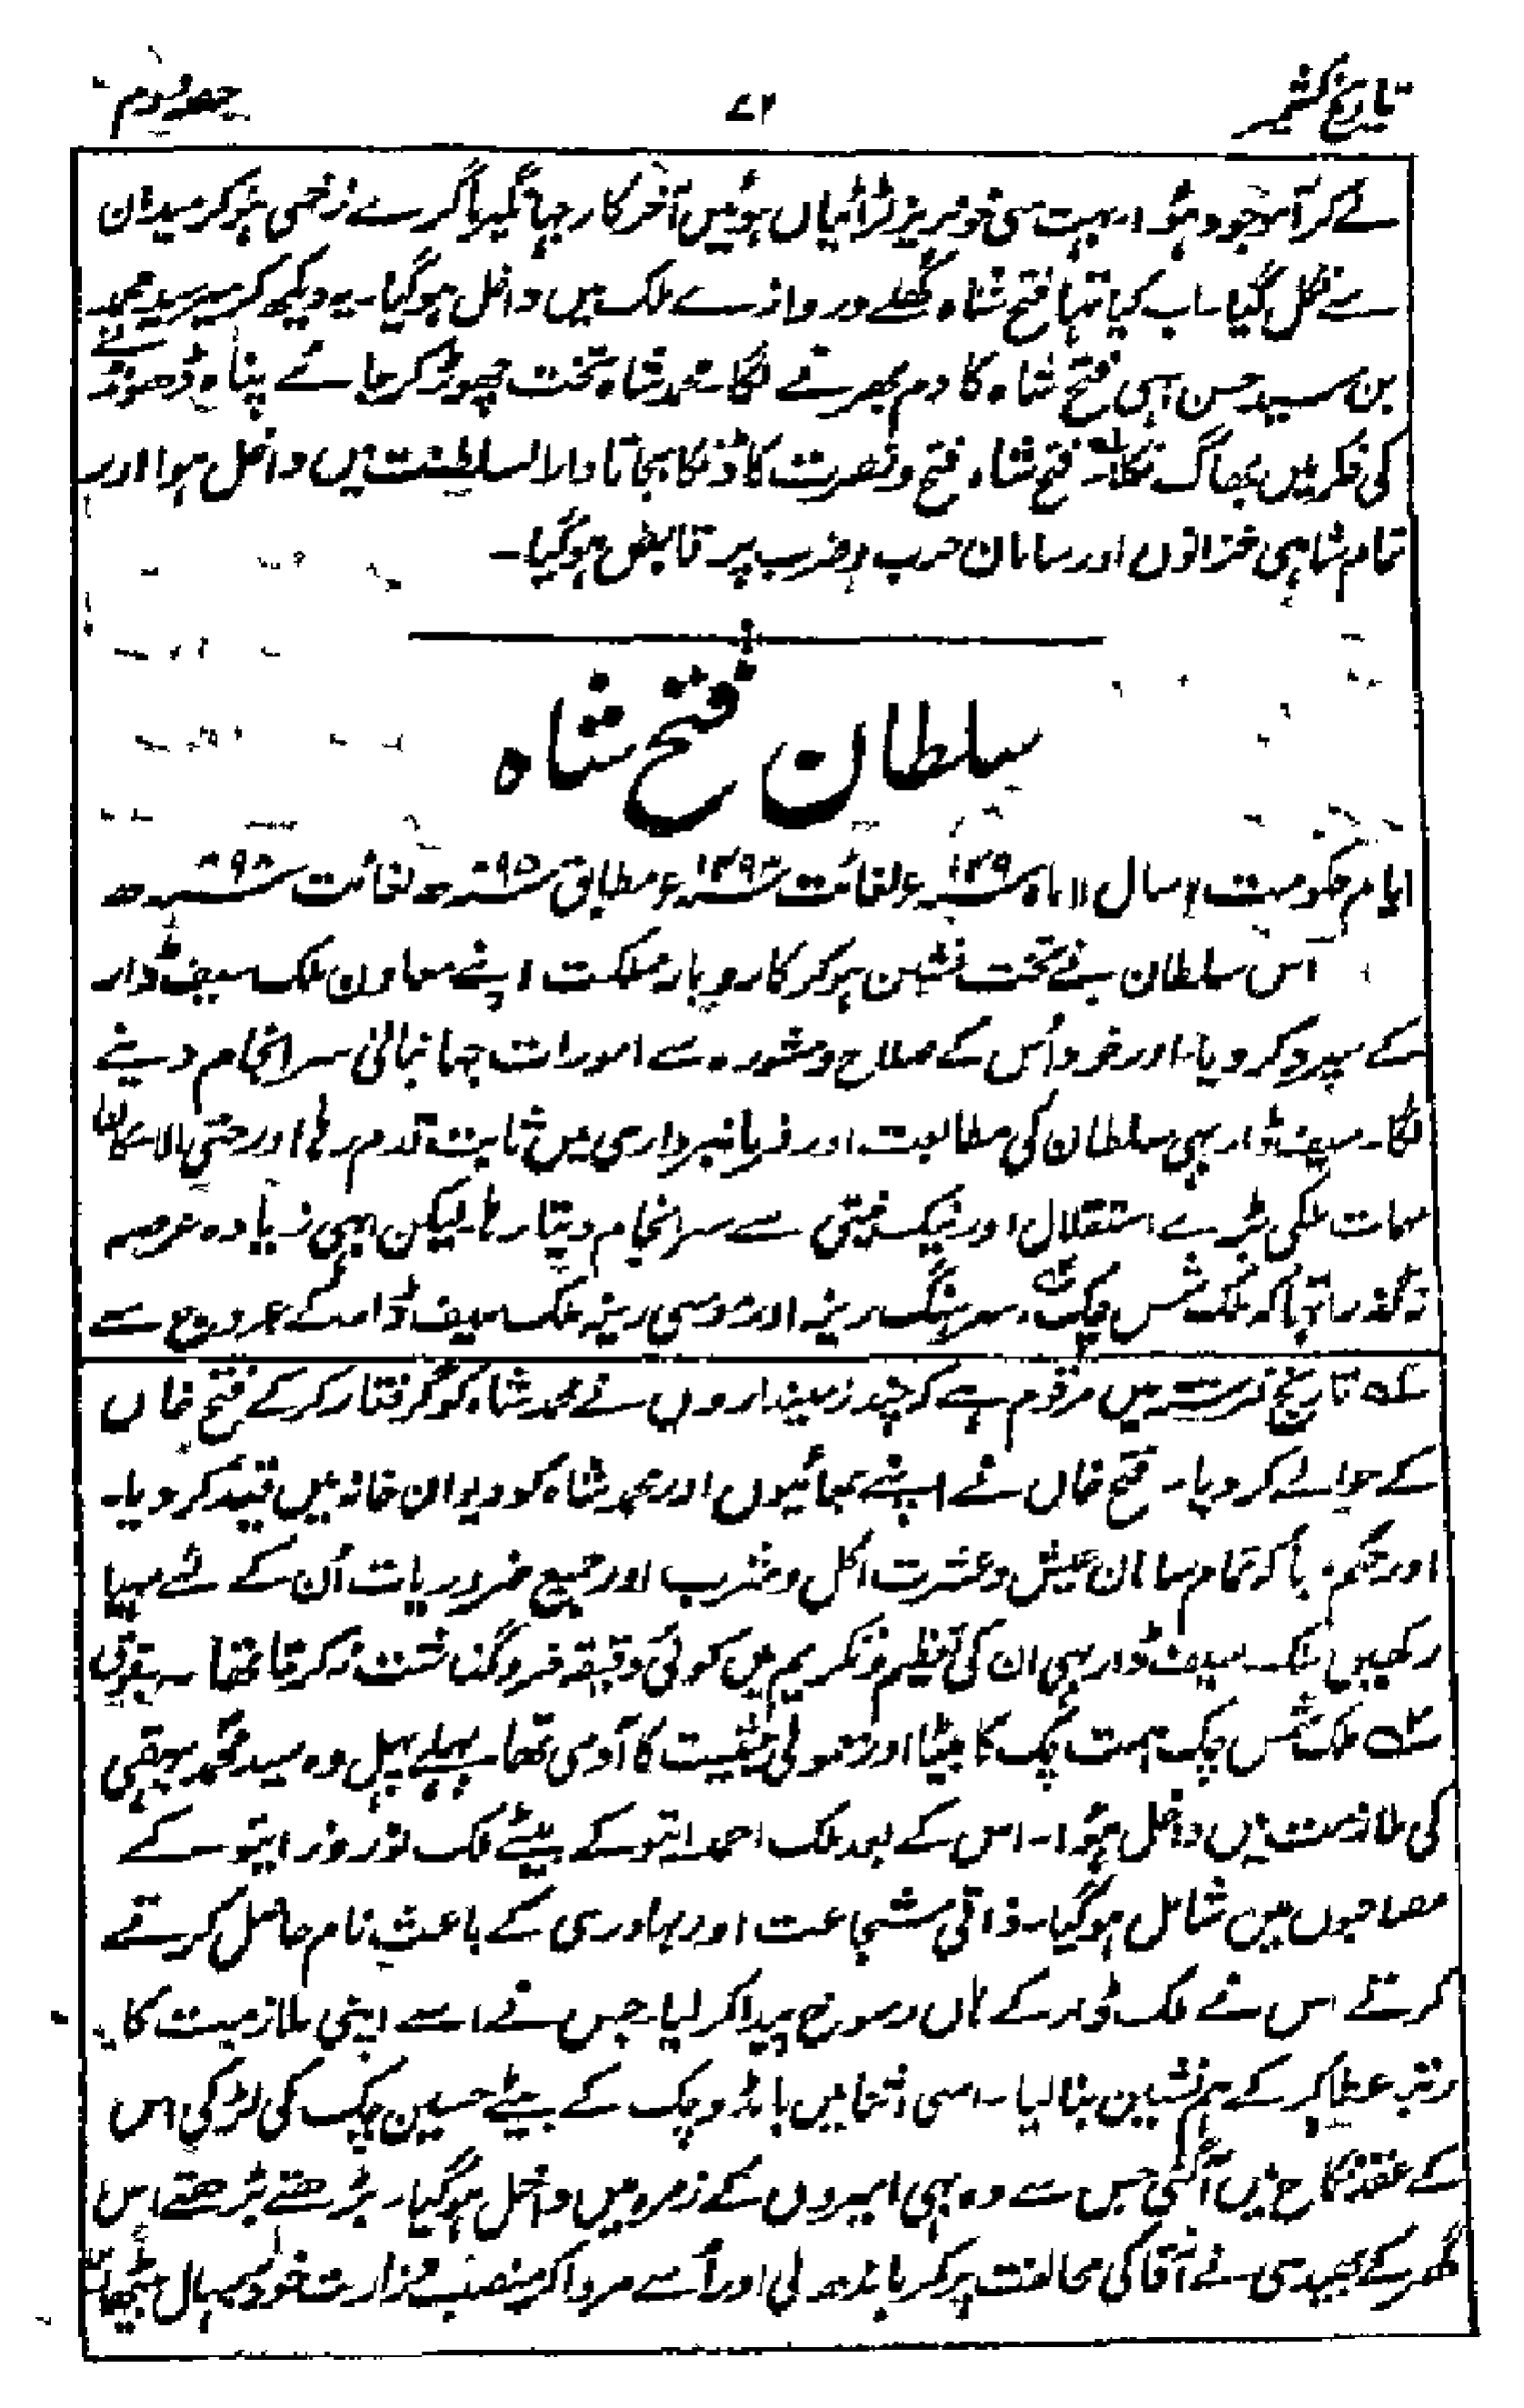 تاریخ کشمیر
۷۲
حصہ دوم
لے کر آموجود ہؤا۔ بہت سی خونریز لڑائیاں ہوئیں آخر کار جہانگیر ماگرے زخمی ہو کر میدان
سے نکل گیا۔ اب کیا تہا فتح شاہ کُھلے دروازے ملک میں داخل ہوگیا۔ یہ دیکھ کر میر سید محمد
بن سید حسن بہی فتح شاہ کا دم بھرنے لگا۔ محمد شاہ تخت چھوڑ کر جائے پناہ ڈھونڈنے
کی فکر میں بھاگ نکلا۔ فتح شاہ فتح و نصرت کا ڈنکا بجاتا دارالسلطنت میں داخل ہوا اور
تمام شاہی خزانوں اور سامان حرب و ضرب پر قابض ہوگیا۔
سلطان فتح شاہ
ایام حکومت سال ۱۱ ماہ لغائت مطابق لغائت
اس سلطان نے تخت نشین ہو کر کاروبار مملکت اپنے معاون ملک سیف ڈار
کے سپرد کردیا۔ اور خود اُس کے صلاح و مشورہ سے امورات جہانبانی سرانجام دینے
لگا۔ سیف ڈار بہی سلطان کی مطابعت اور فرمانبرداری میں ثابت قدم رہا اور حتی الامکان
مہمات ملکی بڑے استقلال اور نیک نیتی سے سرانجام دیتا رہا۔ لیکن ابہی زیادہ عرصہ
نہ گذرا تہا کہ ملک شمس چک، سرہنگ رینہ اور موسی رینہ ملک سیف ڈار کے عروج سے
۱ـہ تاریخ فرشتہ میں مرقوم ہے کہ چند زمینداروں نے محمد شاہ کو گرفتار کرکے فتح خاں
کے حوالے کردیا۔ فتح خاں نے اپنے بھائیوں اور محمد شاہ کو دیوان خانہ میں قید کردیا۔
اور حکم دیا کہ تمام سامان عیش و عشرت اکل و شرب اور جمیع ضروریات اُن کے لئے مہیا
رکھیں ملک سیف ڈار بہی ان کی تعظیم و تکریم میں کوئی دقیقہ فروگذاشت نہ کرتا تھا۔
۲ـہ ملک شمس چک ہمت چک کا بیٹا اور معمولی حیثیت کا آدمی تھا۔ پہلے پہل وہ سید محمد بیہقی
کی ملازمت میں داخل ہؤا۔ اس کے بعد ملک احمد ایتو کے بیٹے ملک نوروز ایتو کے
مصاحبوں میں شامل ہوگیا۔ ذاتی شجاعت اور بہادری کے باعث نام حاصل کرتے
کرتے اس نے ملک ڈار کے ہاں رسوخ پیدا کر لیا۔ جس نے اسے اپنی ملازمت کا
رتبہ عطا کر کے ہم نشین بنا لیا۔ اسی اثنا میں پانڈو چک کے بیٹے حسین چک کی لڑکی اس
کے عقد نکاح میں آگئی جس سے وہ بہی امیروں کے زمرہ میں داخل ہوگیا۔ بڑھتے بڑھتے اس
گھر کے بھیدی نے آقا کی مخالفت پر کمر باندھ لی اور اُسے مروا کر منصب وزارت خود سنبھال بیٹھا۔